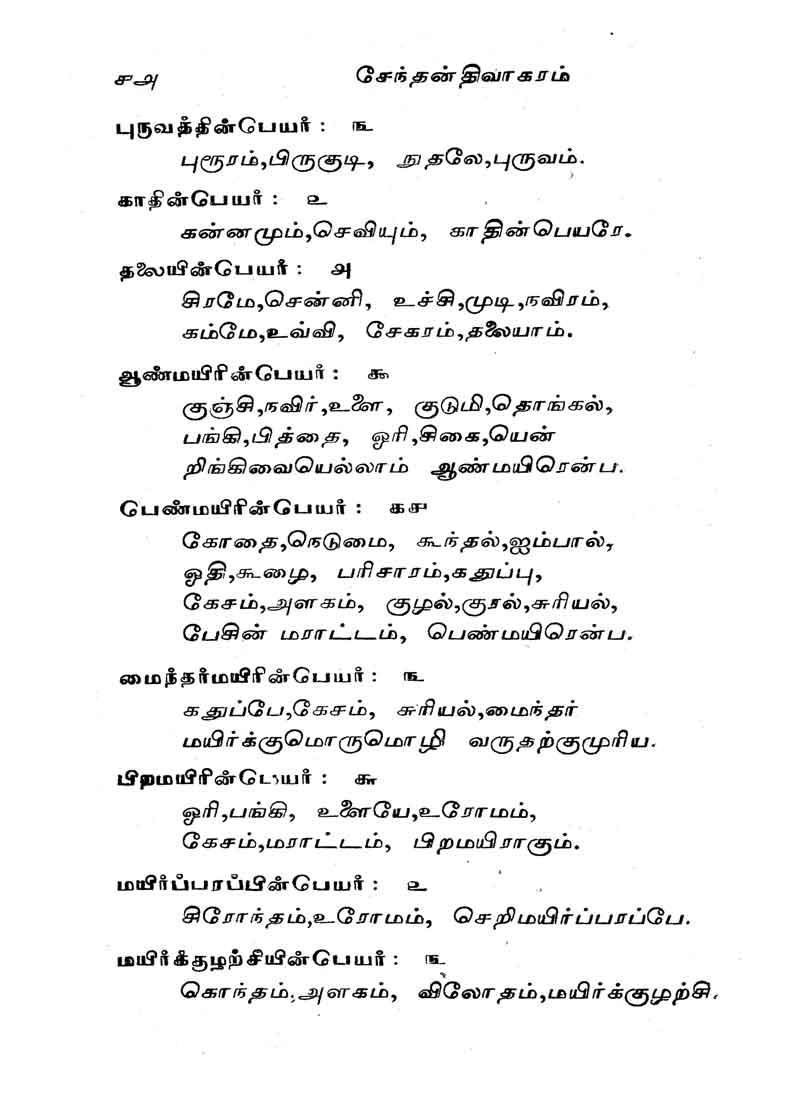 ௪அ சேந்தன்திவாகரம்
புருவத்தின்பெயர் : ௩
புரூரம்,பிருகுடி, நுதலே,புருவம்.
காதின்பெயர் : ௨
கன்னமும்,செவியும், காதின்பெயரே.
தலையின்பெயர் : அ
சிரமே,சென்னி, உச்சி,முடி,நவிரம்,
கம்மே,உவ்வி, சேகரம்,தலையாம்.
ஆண்மயிரின்பெயர் : ௯
குஞ்சி,நவிர்,உளை, குடுமி,தொங்கல்,
பங்கி,பித்தை, ஓரி,சிகை,யென்
றிங்கிவையெல்லாம் ஆண்மயிரென்ப.
பெண்மயிரின்பெயர் : ௧௪
கோதை,நெடுமை, கூந்தல்,ஐம்பால்,
ஓதி,கூழை, பரிசாரம்,கதுப்பு,
கேசம்,அளகம், குழல்,குரல்,சுரியல்,
பேசின் மராட்டம், பெண்மயிரென்ப.
மைந்தர்மயிரின்பெயர் : ௩
கதுப்பே,கேசம், சுரியல்,மைந்தர்
மயிர்க்குமொருமொழி வருதற்குமுரிய.
பிறமயிரின்பெயர் : ௬
ஓரி,பங்கி, உளையே,உரோமம்,
கேசம்,மராட்டம், பிறமயிராகும்.
மயிர்ப்பரப்பின்பெயர் : ௨
சிரோந்தம்,உரோமம், செறிமயிர்ப்பரப்பே.
மயிர்க்குழற்சியின்பெயர் : ௩
கொந்தம்,அளகம், விலோதம்,மயிர்க்குழற்சி.